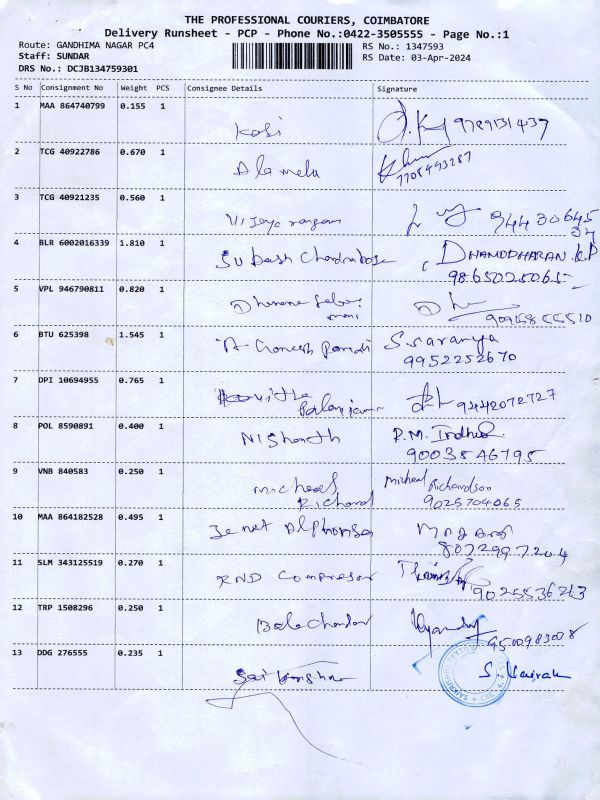 THE PROFESSIONAL COURIERS, COIMBATORE
Delivery Runsheet - PCP - Phone No.:0422-3505555 - Page No.:1
Route: GANDHIMA NAGAR PC4
RS No.: 1347593
Staff: SUNDAR
RS Date: 03-Apr-2024
DRS No.: DCJB134759301
S No Consignment No Weight PCS Consignee Details Signature
1 MAA 864740799 0.155 1 Kasi 9789131437
2 TCG 40922786 0.670 1 Alamelu 7708493287
3 TCG 40921235 0.560 1 Vijayarangan 9443064537
4 BLR 6002016339 1.810 1 Subash Chandrabose DHANODHARAN.K.P
9865025065
5 VPL 946790811 0.820 1
6 BTU 625398 1.545 1 A. Ganesh Pandi S. Saranya
9952252670
7 DPI 10694955 0.765 1 9442072727
8 POL 8590891 0.400 1 Nishanth P.M. 
9003546795
9 VNB 840583 0.250 1 Micheal Richard Micheal Richardson
9025704065
10 MAA 864182528 0.495 1 Jenet Alphonsa
8072997204
11 SLM 343125519 0.270 1 RND Compresor 9025536263
12 TRP 1508296 0.250 1 Balachandar 9500983008
13 DDG 276555 0.235 1 Sai Krishna